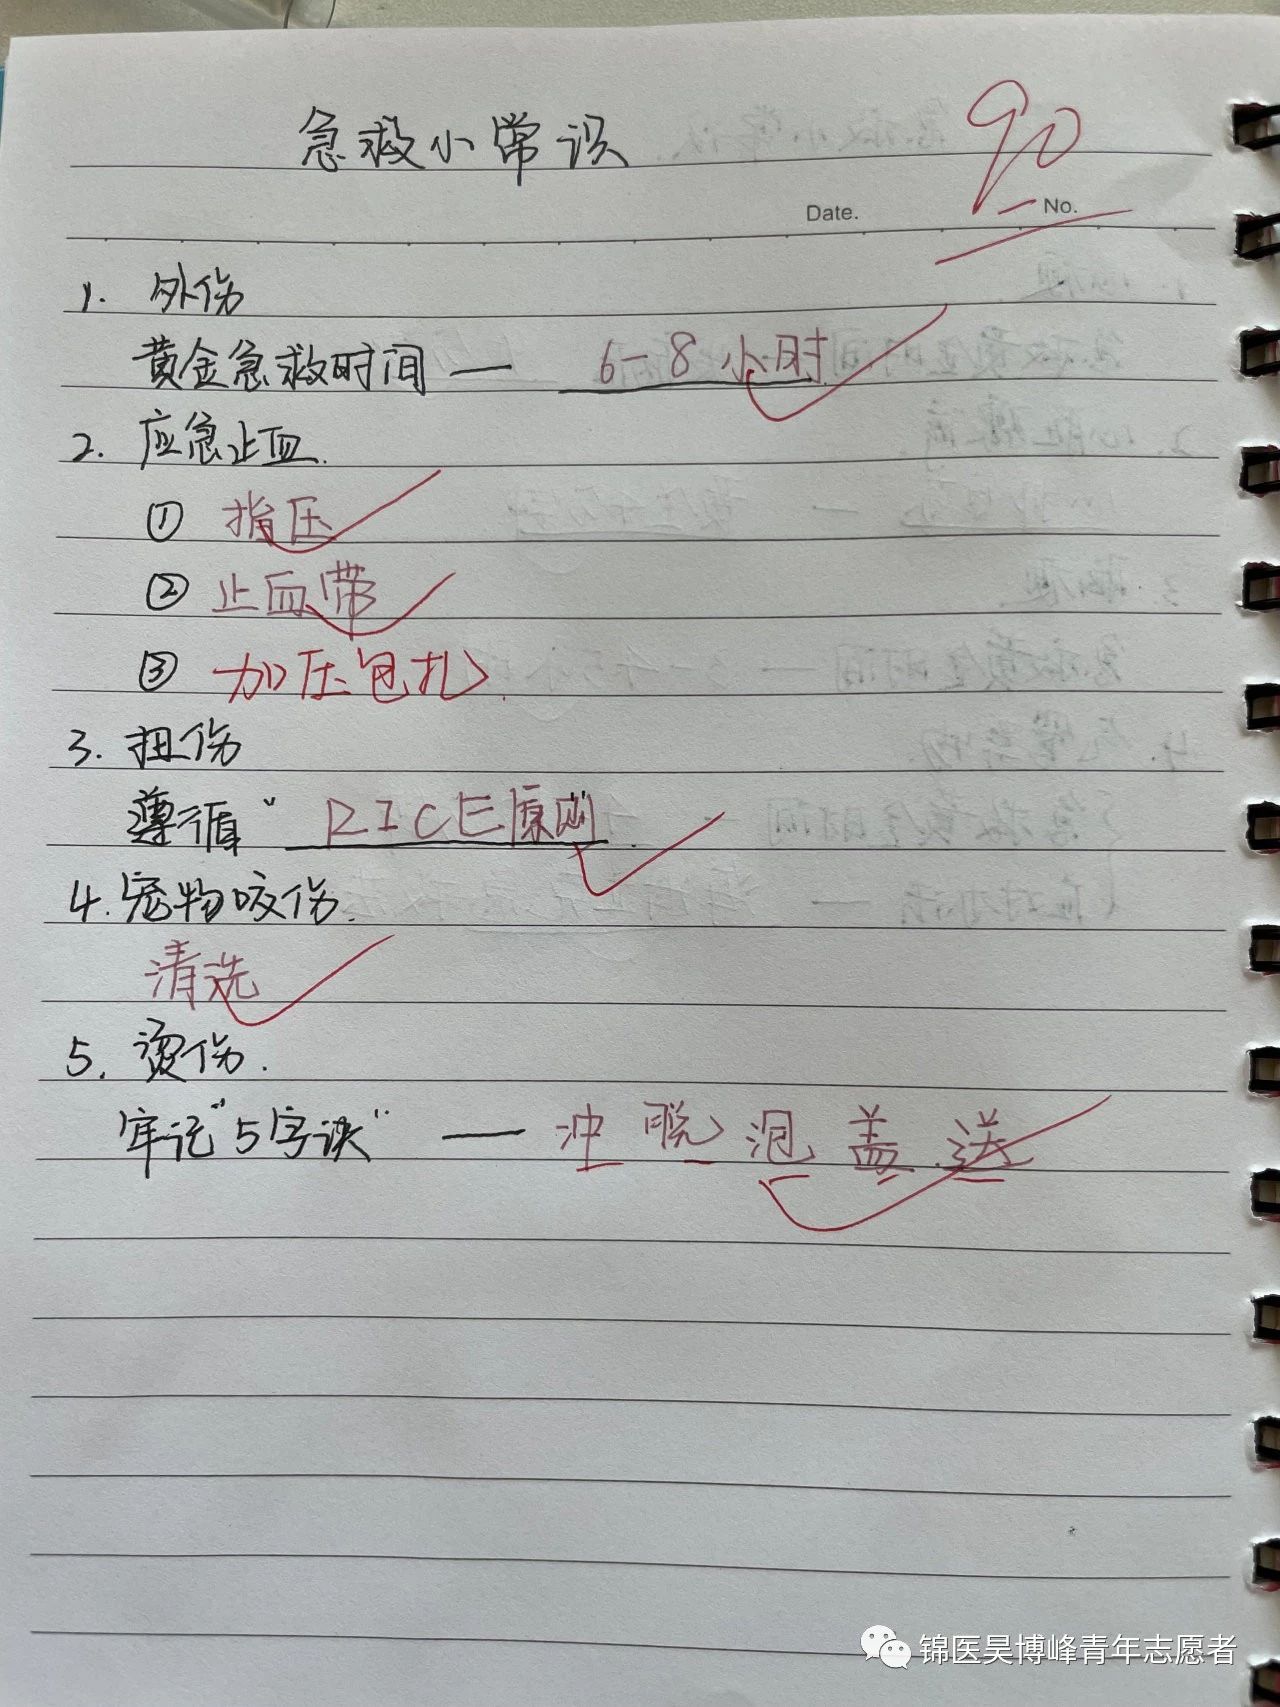 急救小常识
90
Date.
No.
1. 外伤
黄金急救时间 — 6-8小时
2. 应急止血.
① 指压
② 止血带
③ 加压包扎.
3. 扭伤
遵循“RICE原则
4. 宠物咬伤.
清洗
5. 烫伤.
牢记“5字诀” — 冲脱泡盖送
锦医昊博峰青年志愿者